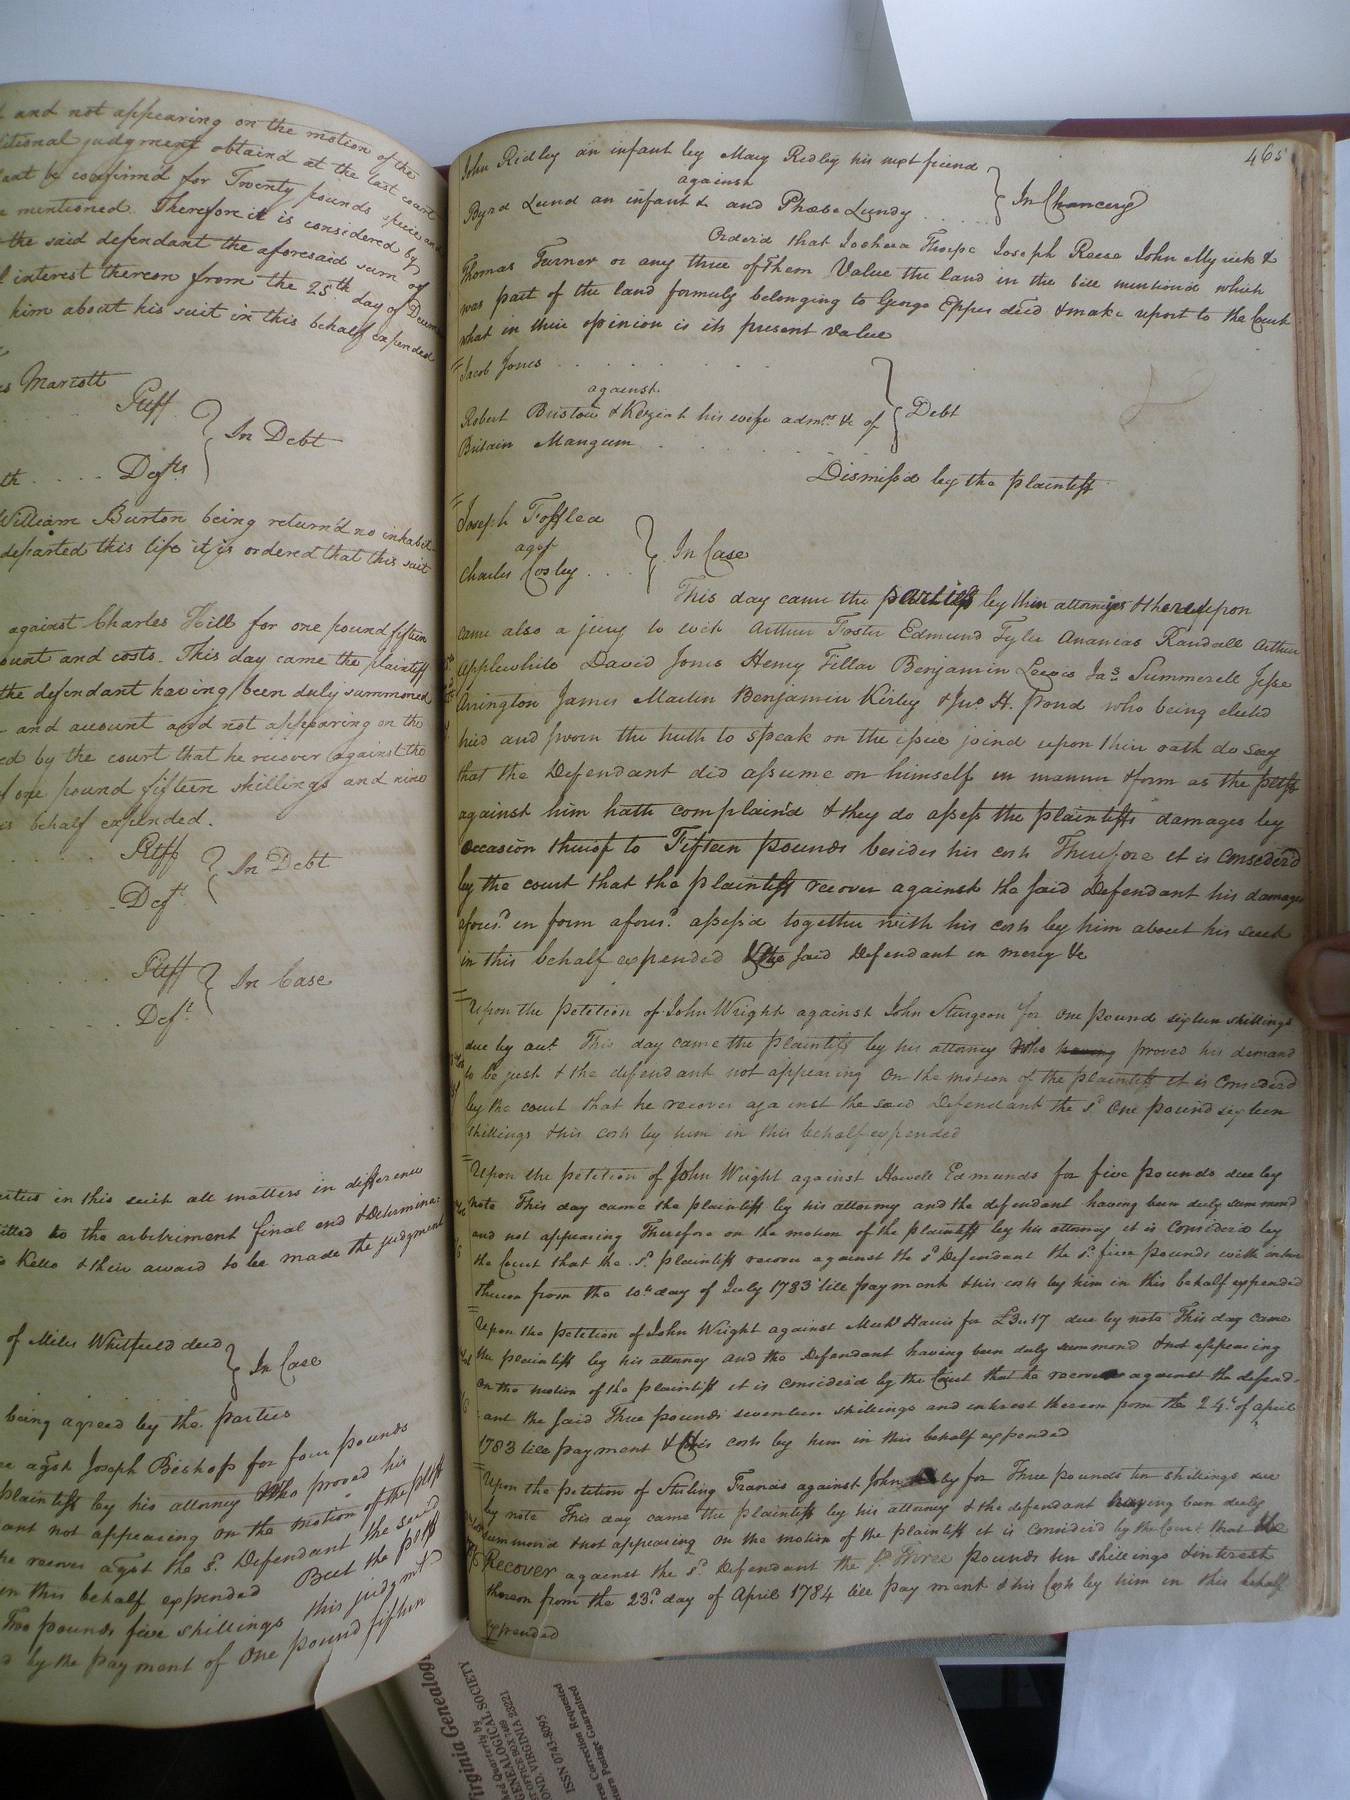 and not appearing on the motion of the
ditional judgment obtaind at the last court
ant be confirmd for Twenty pounds specie and
mentioned. Therefore it is considered by
the said defendant the aforesaid sum of
interest thereon from the 25th day of Decem
him about his suit in this behalf expended
Mariott
Pltff
In Debt
th . . . . Defts
William Burton being return'd no inhabit
departed this life it is ordered that this suit
against Charles Hill for one pound fifteen
ount and costs. This day came the plaintiff
the defendant having been duly summoned
and account and not appearing on the
ed by the court that he recover against the
of one pound fifteen shillings and nine
is behalf expended.
Pltff
In Debt
Deft
Pltff
In Case
Deft
arties in this suit all matters in difference
itted to the arbitriment final end & determina:
Kello & their award to be made the judgment
of Miles Whitfield decd
In Case
being agreed by the parties
agst Joseph Bishop for four pounds
plaintiff by his attorney Who proved his
ant not appearing on the motion of the pltff
he recover agst the sd. Defendant the said
in this behalf expended But the pltff
Two pounds five shillings this judgmt
by the payment of one pound fifteen
465
John Ridley an infant by Mary Ridley his next friend
against
In Chancery
Byrd Lund an infant & and Phœbe Lundy . . . .
Orderd that Joshua Thorpe Joseph Reese John Myrick &
Thomas Turner or any three of them Value the land in the bill mentiond which
was part of the land formerly belonging to George Epps decd & make report to the Court
what in their opinion is its present value
Jacob Jones
against
Robert Bristow & Keziah his wife admrs &c of
Debt
Britain Mangum
Dismiss'd by the plaintiff
Joseph Toffled
agst
In Case
Charles Cosby . . . .
This day came the parties by their attornies & thereupon
came also a jury to wit Arthur Foster Edmund Tyler Ananias Randall Arthur
Applewhite David Jones Henry Fillar Benjamin Lewis Jas. Summerell Jesse
Arrington James Martin Benjamin Kirby & Jno H. Pond who being elected
tried and sworn the truth to speak on the issue joind upon their oath do say
that the Defendant did assume on himself in manner & form as the pltff
against him hath complain'd & they do assess the plaintiffs damages by
occasion thereof to Fifteen pounds besides his costs Therefore it is considerd
by the court that the plaintiff recover against the said Defendant his damages
afores.d in form afores.d assess'd together with his costs by him about his suit
in this behalf expended & the said Defendant in mercy &c
Upon the petition of John Wright against John Sturgeon for one pound sixteen shillings
due by act This day came the plaintiff by his attorney Who having proved his demand
to be just & the defendant not appearing On the motion of the plaintiff it is Considerd
by the court that he recover against the said Defendant the sd. One pound sixteen
shillings & his costs by him in this behalf expended
Upon the petition of John Wright against Howell Edmunds for five pounds due by
note This day came the plaintiff by his attorney and the defendant having been duly summond
and not appearing Therefore on the motion of the plaintiff by his attorney it is Considerd by
the Court that the sd. plaintiff recover against the sd Defendant the sd. five pounds with interest
thereon from the 10th day of July 1783 till payment & his costs by him in this behalf expended
Upon the petition of John Wright against Harris for £3..17 due by note This day came
the plaintiff by his attorney and the Defendant having been duly summond & not appearing
on the motion of the plaintiff it is considerd by the Court that he recover against the defend-
ant the said Three pounds seventeen shillings and interest thereon from the 24th of April
1783 till payment & his costs by him in this behalf expended
Upon the petition of Sterling Francis against John for Three pounds ten shillings due
by note This day came the plaintiff by his attorney & the defendant having been duly
summond & not appearing on the motion of the plaintiff it is Considerd by the Court that he
Recover against the sd Defendant the sd Three pounds ten shillings & interest
thereon from the 23d day of April 1784 till payment & his Costs by him in this behalf
expended
Virginia Genealogi
Quarterly by
GENEALOGICAL SOCIETY
OFFICE BOX 7469
OND, VIRGINIA 23221
ISSN 0743-8095
ress Correction Requested
urn Postage Guaranteed